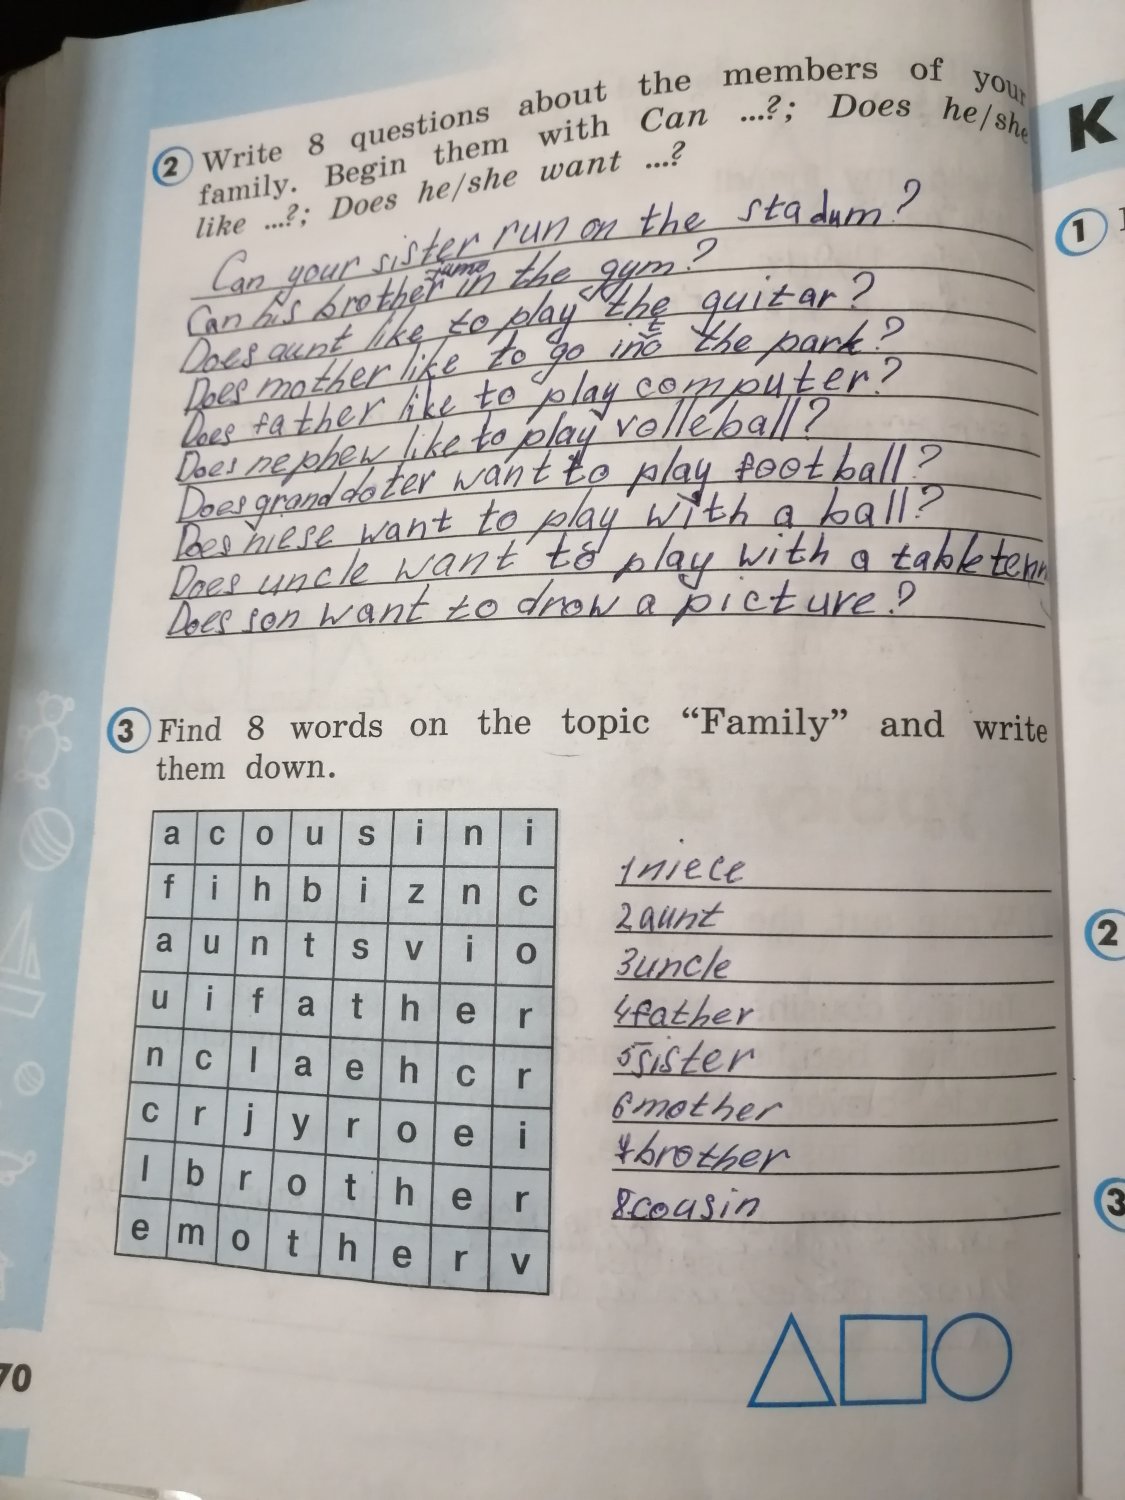 K
2 Write 8 questions about the members of your
family. Begin them with Can ...?; Does he/she
like ...?; Does he/she want ...?
Can your sister run on the stadum?
Can his brother jump in the gym?
Does aunt like to play the guitar?
Does mother like to go into the park?
Does father like to play computer?
Does nephew like to play volleball?
Does granddoter want to play football?
Does niese want to play with a ball?
Does uncle want to play with a table tenn
Does son want to drow a picture?
3 Find 8 words on the topic “Family” and write
them down.
a c o u s i n i
f i h b i z n c
a u n t s v i o
u i f a t h e r
n c l a e h c r
c r j y r o e i
l b r o t h e r
e m o t h e r v
1 niece
2 aunt
3 uncle
4 father
5 sister
6 mother
7 brother
8 cousin
70
1
2
3